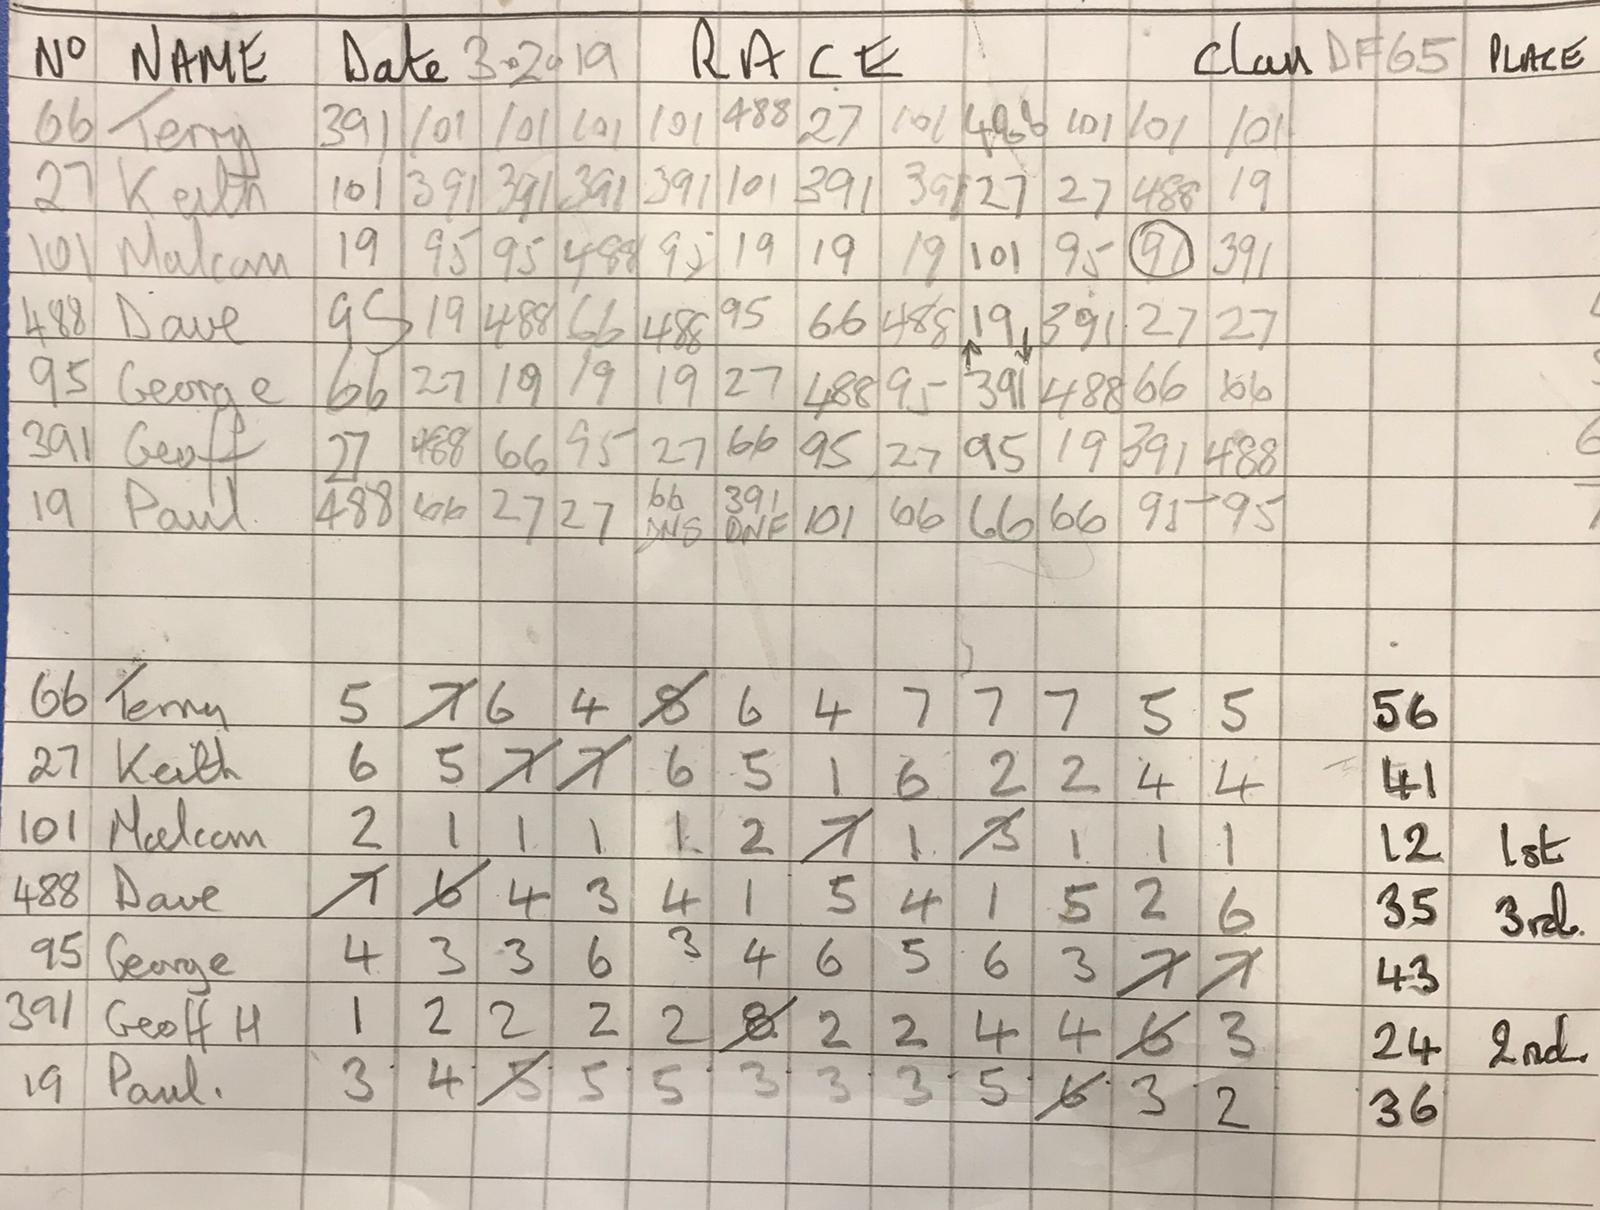 No NAME Date 3.2.19 RACE Class DF65 PLACE
66 Terry 391 101 101 101 101 488 27 101 488 101 101 101
27 Keith 101 391 391 391 391 101 391 391 27 27 488 19
101 Malcom 19 95 95 488 95 19 19 19 101 95 391
488 Dave 95 19 488 66 488 95 66 488 19 391 27 27
95 George 66 27 19 19 19 27 488 95 391 488 66 66
391 Geoff 27 488 66 95 27 66 95 27 95 19 391 488 6
19 Paul. 488 66 27 27 66 DNS 391 DNF 101 66 66 66 95 95 7
66 Terry 5 7 6 4 8 6 4 7 7 7 5 5 56
27 Keith 6 5 7 7 6 5 1 6 2 2 4 4 41
101 Malcom 2 1 1 1 1 2 7 1 3 1 1 1 12 1st
488 Dave 7 6 4 3 4 1 5 4 1 5 2 6 35 3rd.
95 George 4 3 3 6 3 4 6 5 6 3 7 7 43
391 Geoff H 1 2 2 2 2 8 2 2 4 4 6 3 24 2nd.
19 Paul. 3 4 5 5 5 3 3 3 5 6 3 2 36